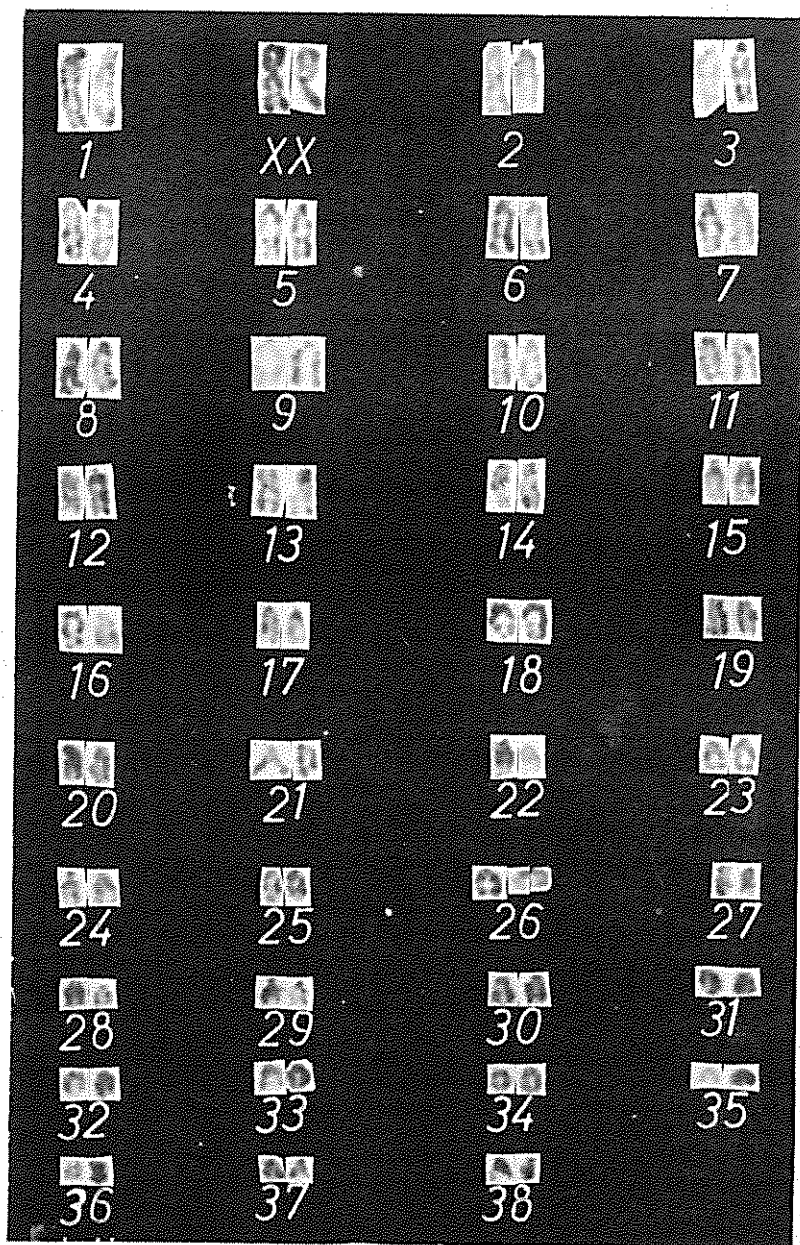 1 XX 2 3
4 5 6 7
8 9 10 11
12 13 14 15
16 17 18 19
20 21 22 23
24 25 26 27
28 29 30 31
32 33 34 35
36 37 38